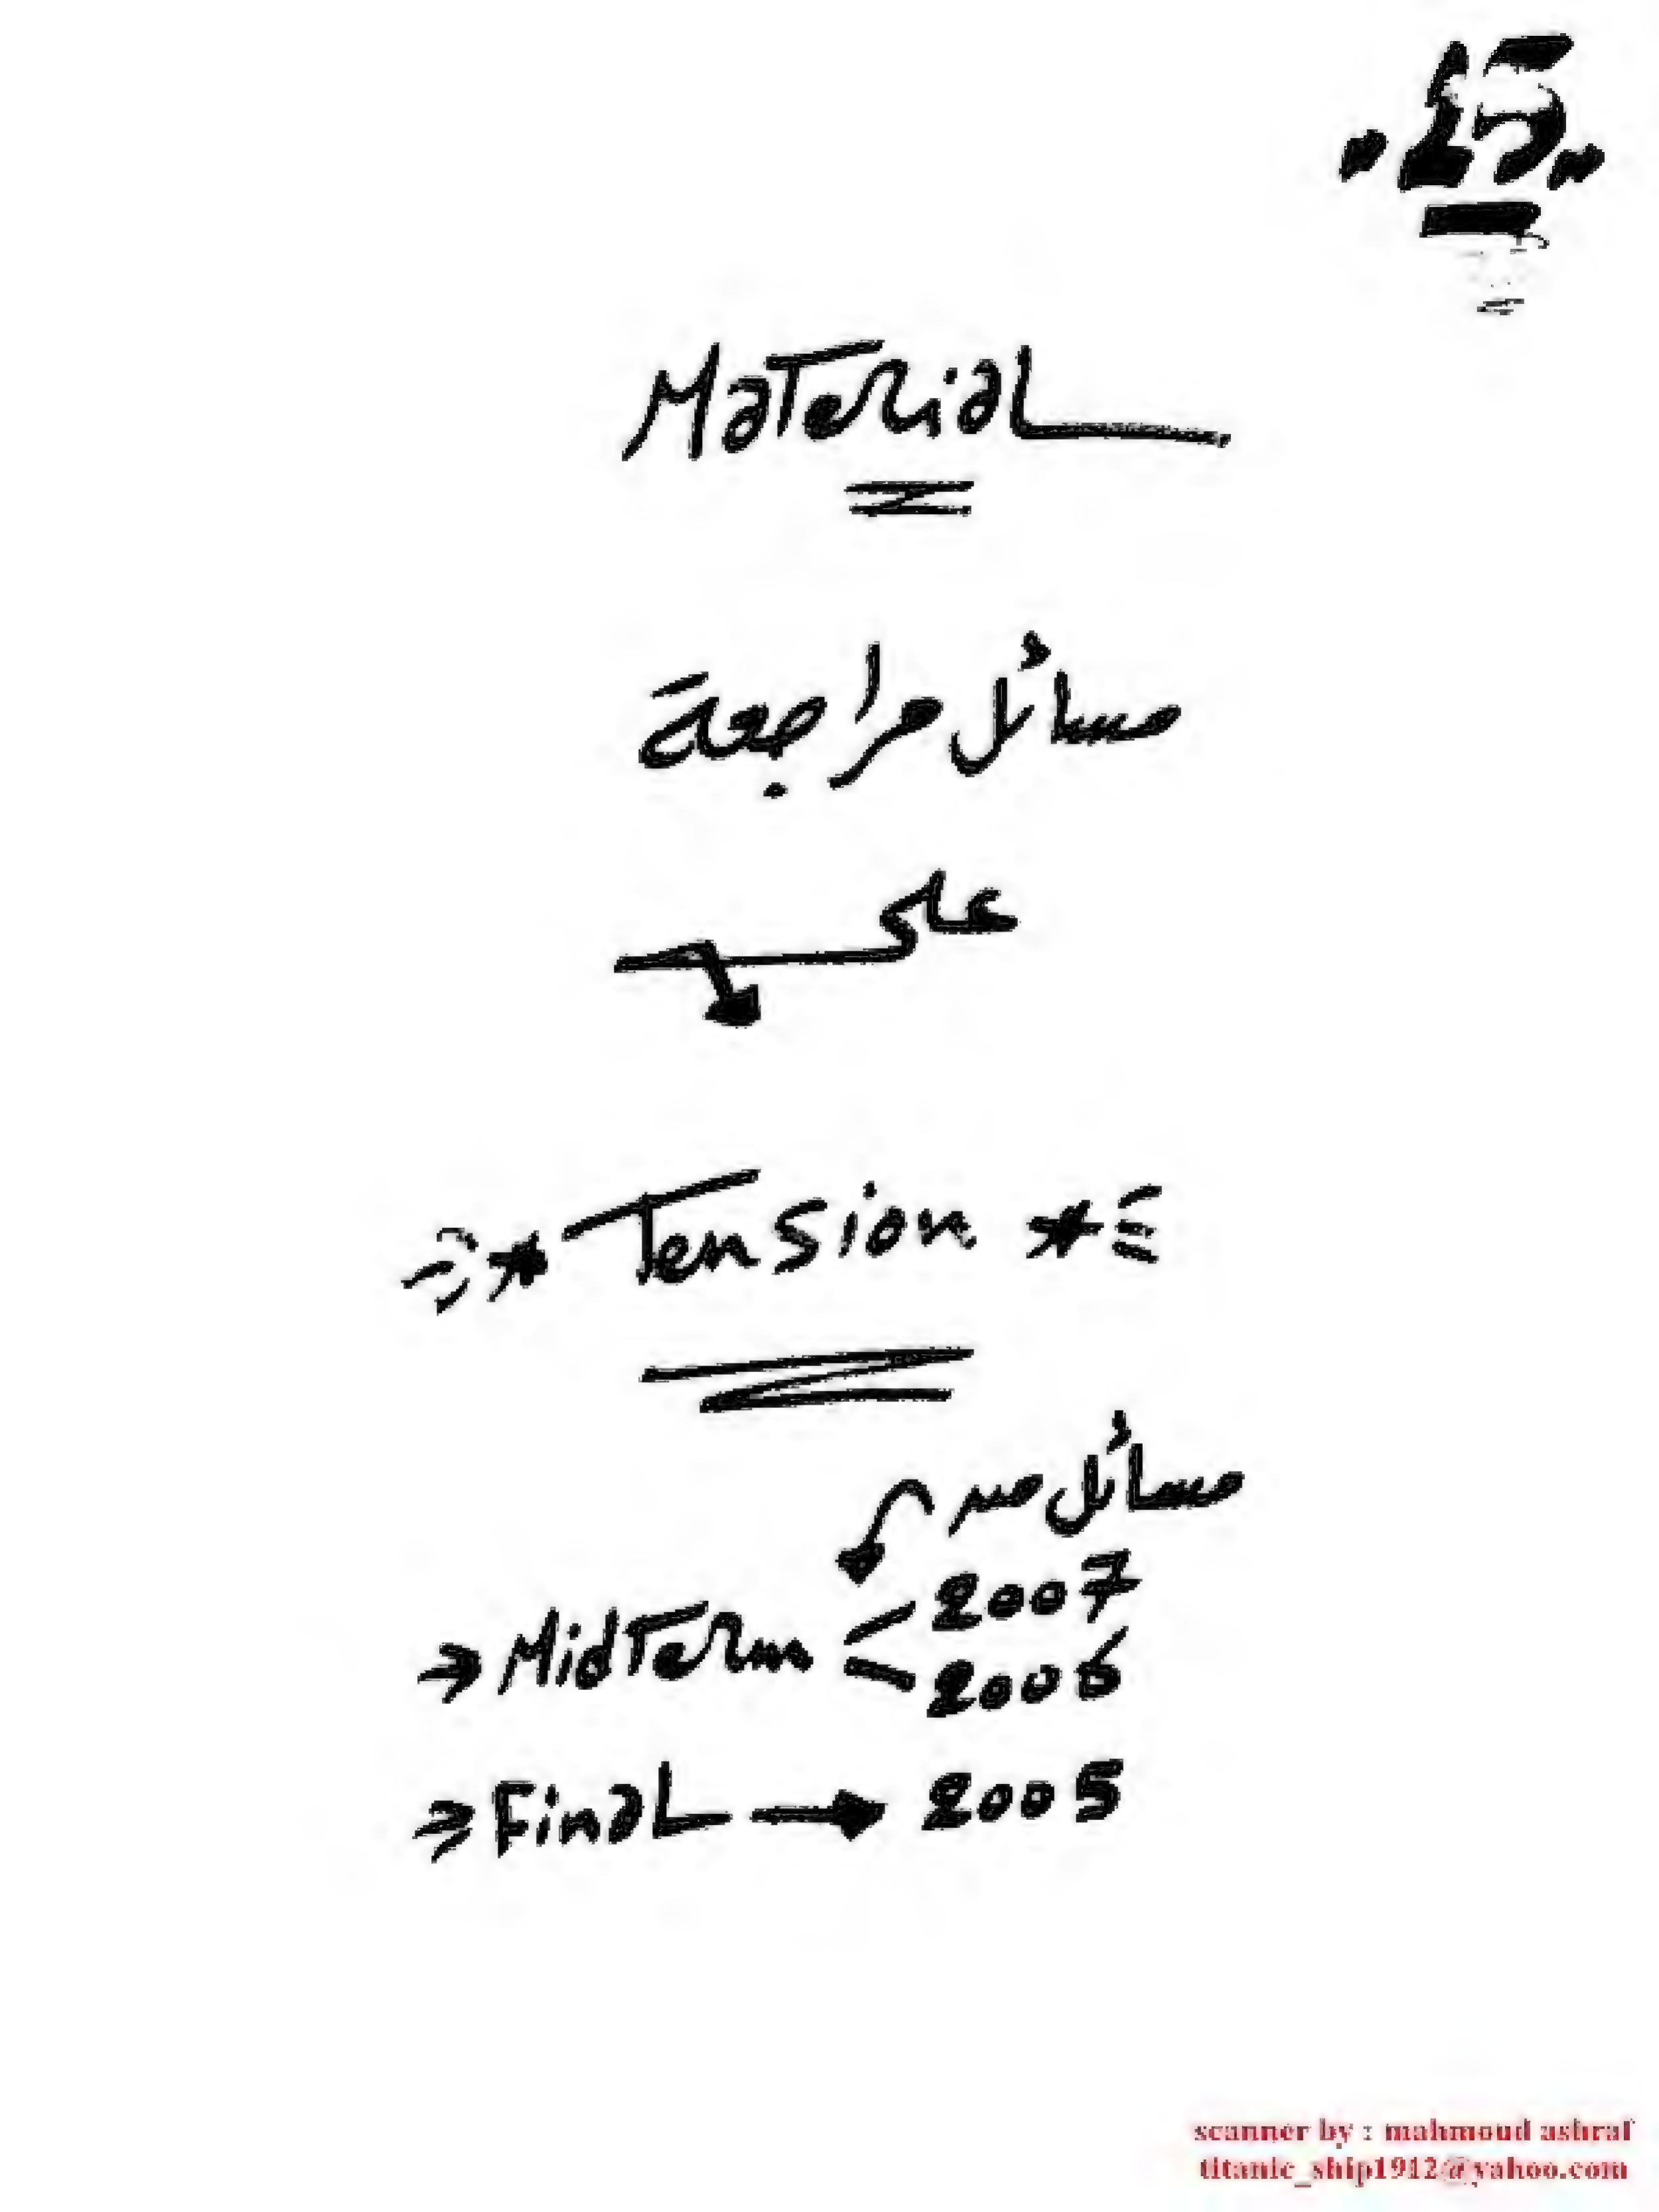 "15"
Material
مسائل مراجعة
على
* Tension *
مسائل من
2007
⇒ Midterm <
2006
⇒ Final → 2005
scanner by : mahmoud ashraf
titanic_ship1912@yahoo.com